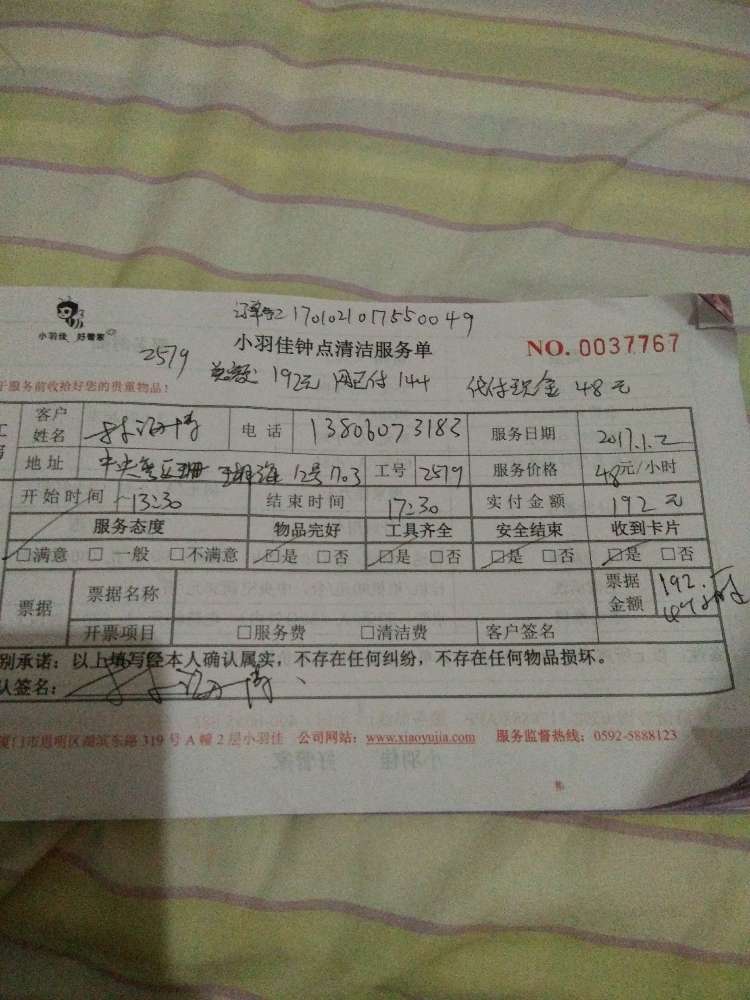 订单号: 17010210175500 49
小羽佳 好管家
小羽佳钟点清洁服务单
NO. 0037767
2579
总额: 192元 网已付 144 代付现金 48元
于服务前收拾好您的贵重物品!
客户姓名 电话 13806073183 服务日期 2017.1.2
地址 中央 12号703 工号 2579 服务价格 48元/小时
开始时间 13:30 结束时间 17:30 实付金额 192元
服务态度 物品完好 工具齐全 安全结束 收到卡片
□满意 □一般 □不满意 □是 □否 □是 □否 □是 □否 □是 □否
票据 票据名称 票据金额 192.
开票项目 □服务费 □清洁费 客户签名
别承诺: 以上填写经本人确认属实, 不存在任何纠纷, 不存在任何物品损坏。
认签名:
厦门市思明区湖滨东路 319 号 A 幢 2 层小羽佳 公司网站: www.xiaoyujia.com 服务监督热线: 0592-5888123